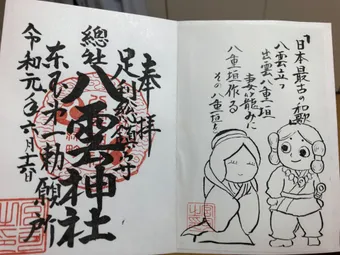 「日本最古の和歌」
八雲立つ
出雲八重垣
妻籠みに
八重垣作る
その八重垣を
奉拝
足利総鎮守
總社八雲神社
東国第一勅願所
令和元年六月